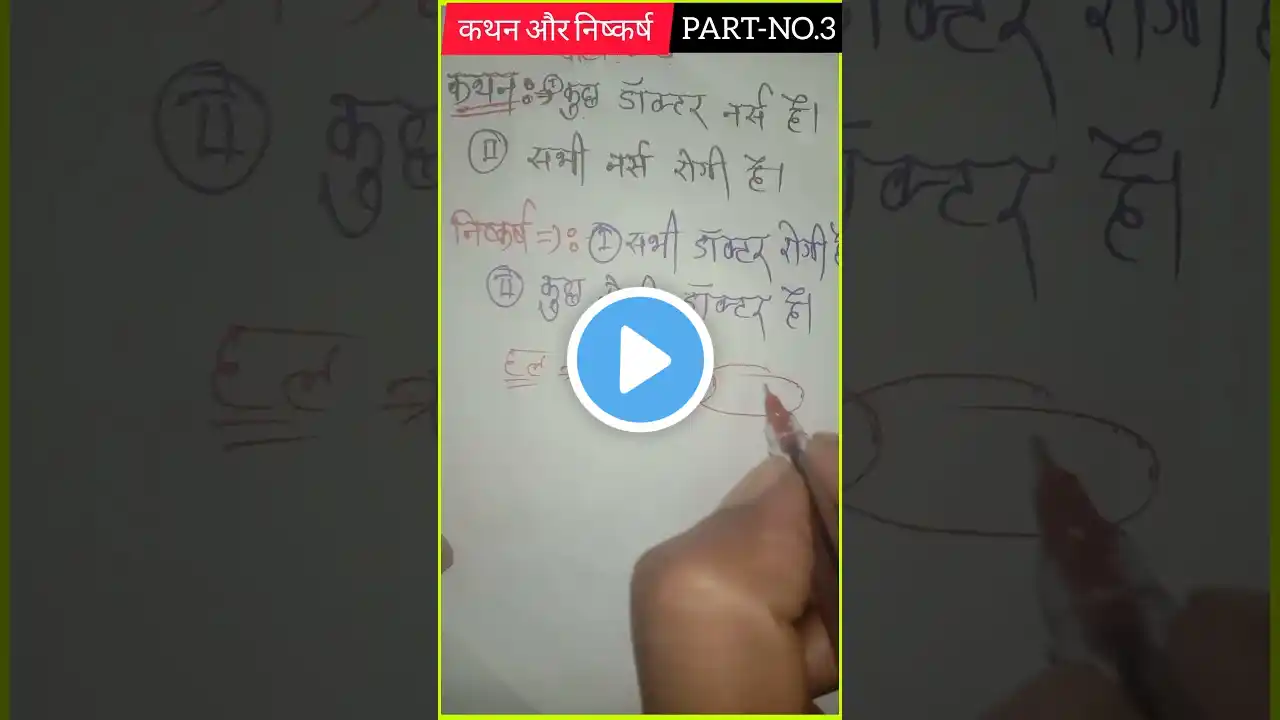 कथन और निष्कर्ष PART-NO.3
कथन :→ I कुछ डॉक्टर नर्स है।
II सभी नर्स रोगी है।
निष्कर्ष =): I सभी डॉक्टर रोगी है
II कुछ डॉक्टर है।
हल